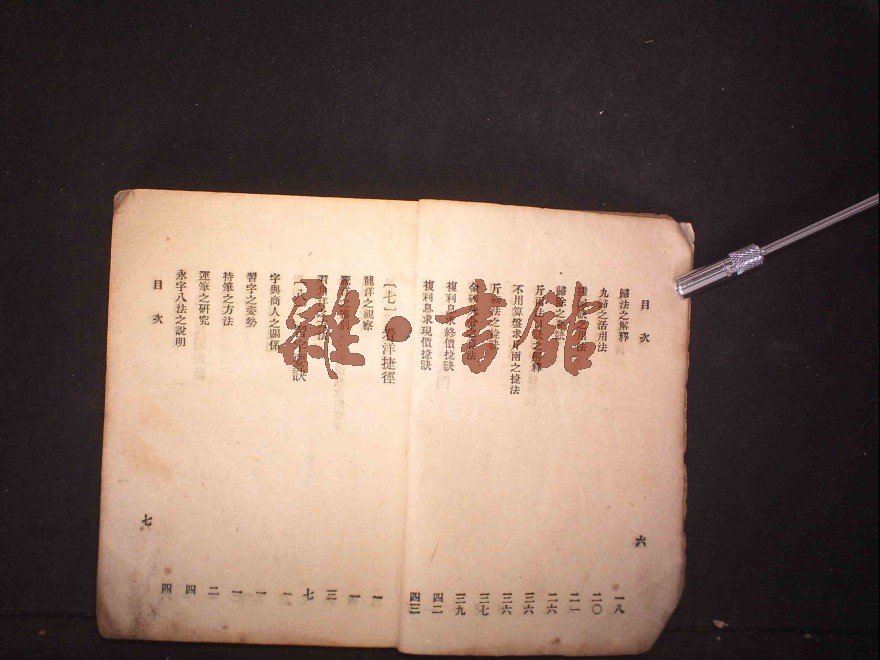 目次
歸法之解釋
九歸之活用法
用法
歸除之
斤
不用算盤求斤兩之捷法
斤
金
複利息求終價捷訣
複利息求現價捷訣
六
一八
二〇
二一
二六
三六
三六
三七
三九
四二
四三
〔七〕看洋捷徑
龍洋之視察
字訣
字與商人之關係
習字之姿勢
持筆之方法
運筆之研究
永字八法之說明
目次
七
一
一
三
七
一
一
一
二
四
四
雜·書館